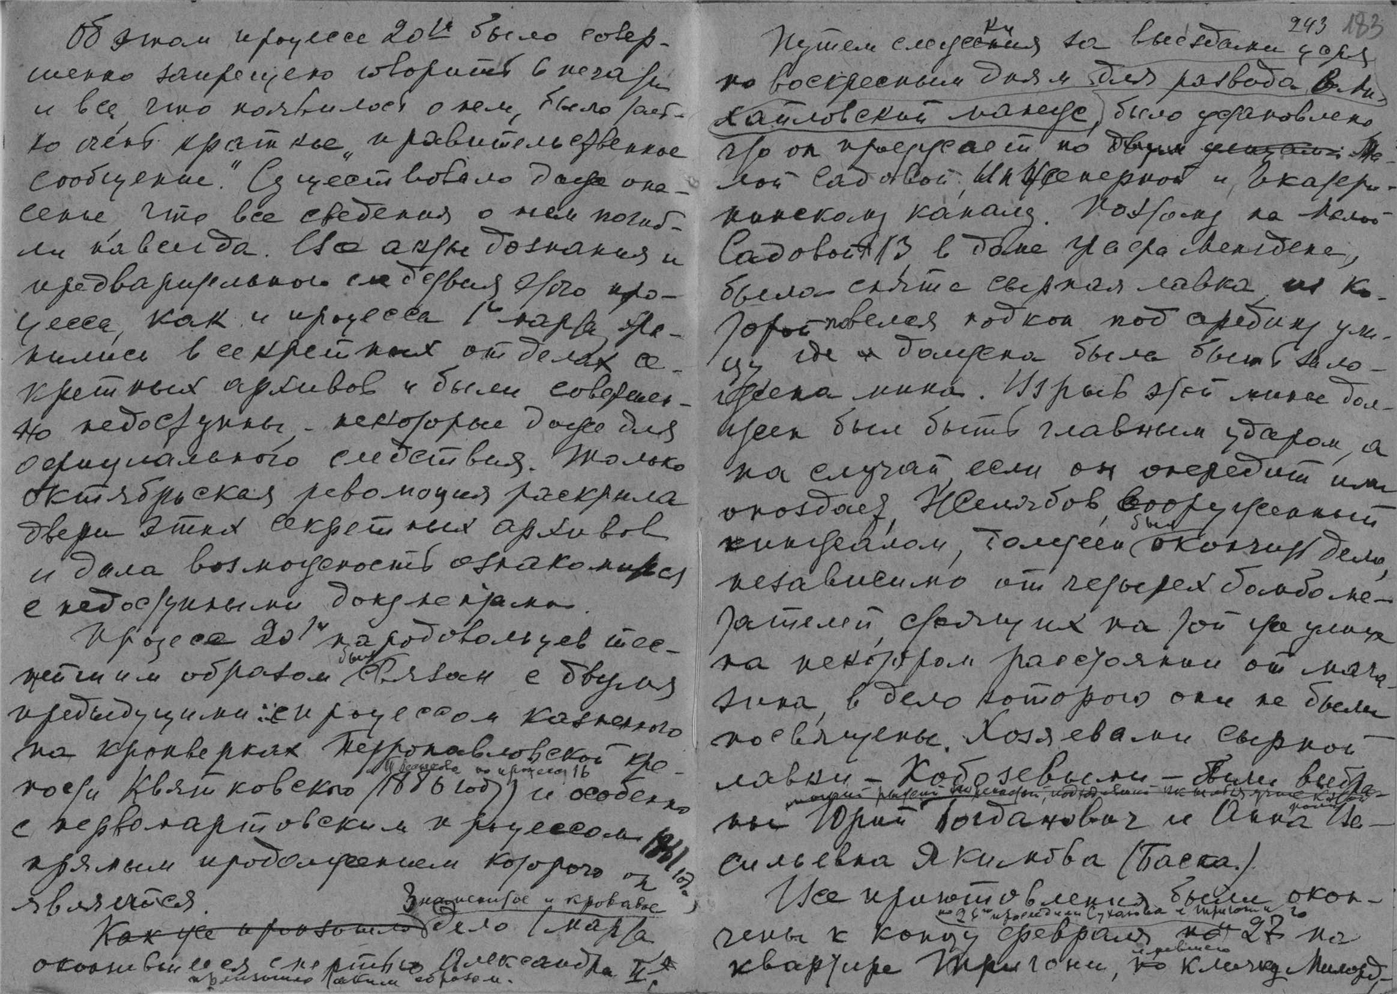 Об этом процессе 20ти было совер-
шенно запрещено говорить в печати
и все, что появилось о нем, было
очень краткое „правительственное
сообщение." Существовало даже опа-
сение, что все сведения о нем погиб-
ли навсегда. Все акты дознания и
предварительного следствия этого про-
цесса, как и процесса 1го марта хра-
нились в секретных отделах се-
кретных архивов и были совершен-
но недоступны, некоторые даже для
официального следствия. Только
октябрьская революция раскрыла
двери этих секретных архивов
и дала возможность ознакомиться
с недоступными документами.
Процесс 20ти народовольцев тес-
нейшим образом был связан с двумя
предыдущими: с процессом казненного
на кронверках Петропавловской кре-
пости Квятковского по процессу 16
(1880 год) и особенно
с первомартовским процессом 1881 года,
прямым продолжением которого он
является.
Знаменитое и кровавое
Как же произошло дело 1 марта,
окончившееся смертью Александра II,
произошло таким образом.
243 183
Путем слежки за выездами царя
по воскресным дням для развода в Ми-
хайловский манеж, было установлено
что он проезжает по двум улицам: Ма-
лой Садовой, Инженерной и Екатери-
нинскому каналу. Поэтому на Малой
Садовой 13 в доме графа Менгдена,
была снята сырная лавка, из ко-
торой повелся подкоп под средину ули-
цы где должна была быть зало-
жена мина. Взрыв этой мины дол-
жен был быть главным ударом, а
на случай, если он опередит или
опоздает, Желябов, вооруженный
кинжалом, должен был окончить дело,
независимо от четырех бомбоме-
тателей, стоящих на той же улице
на некотором расстоянии от мага-
зина, в дело которого они не были
посвящены. Хозяевами сырной
лавки – Кобозевыми – были выбра-
ны Юрий Богданович и Анна Ва-
сильевна Якимова (Баска).
Все приготовления были окон-
чены к концу февраля, но 27 на
квартире Тригони, по кличке Милорд,